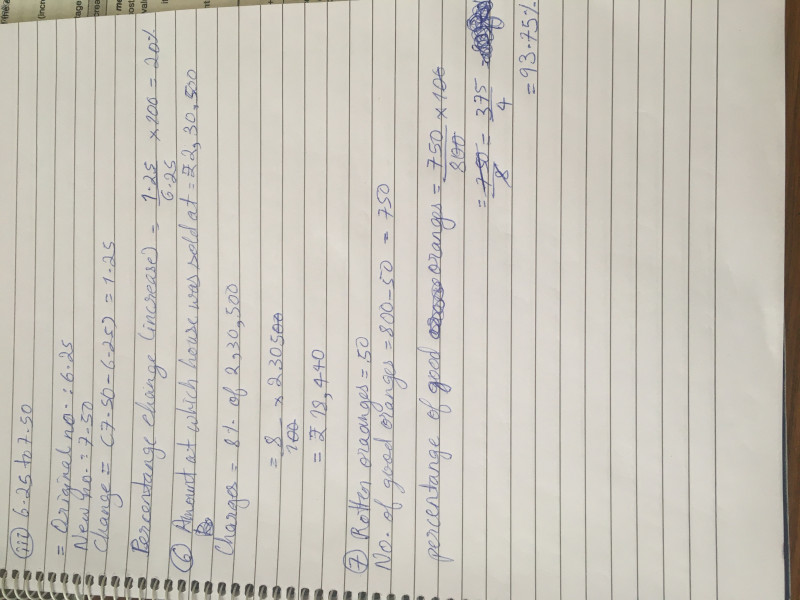 (iii) 6.25 to 7.50
= Original no. : 6.25
New no. : 7.50
Change = (7.50 - 6.25) = 1.25
Percentange change (increase) = 1.25/6.25 × 100 = 20%
(6) Amount at which house was sold at = ₹2,30,500
Charges = 8% of 2,30,500
= 8/100 × 230500
= ₹18,440
(7) Rotten oraanges = 50
No. of good oranges = 800-50 = 750
percentange of good oranges = 750/800 × 100
= 750/8 = 375/4
= 93.75%